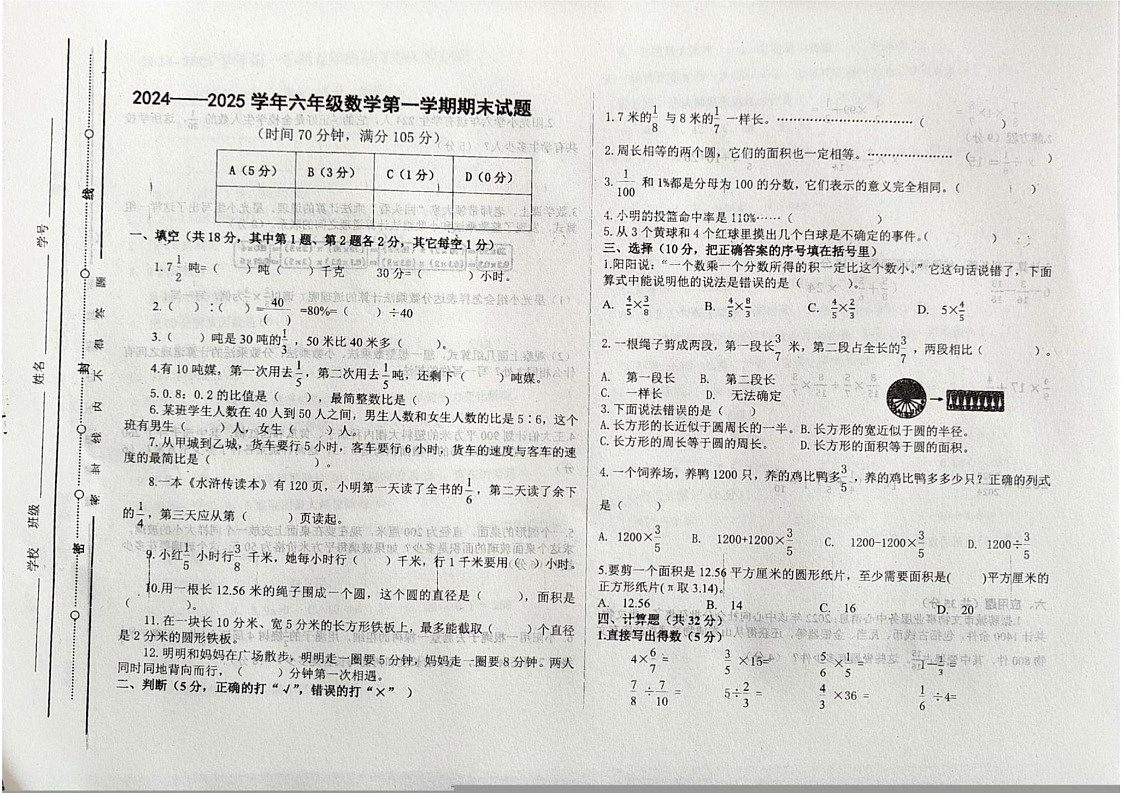 学校
班级
姓名
学号
密
封
线
密 封 线 内 不 得 答 题
2024——2025 学年六年级数学第一学期期末试题
（时间 70 分钟，满分 105 分）
A（5 分） B（3 分） C（1 分） D（0 分）
一、填空（共 18 分，其中第 1 题、第 2 题各 2 分，其它每空 1 分）
1. 7 1/2 吨=（ ）吨（ ）千克 30 分=（ ）小时。
2.（ ）∶（ ）= 40/（ ） =80%=（ ）÷40
3.（ ）吨是 30 吨的 1/3 ，50 米比 40 米多（ ）。
4.有 10 吨媒，第一次用去 1/5 ，第二次用去 1/5 吨，还剩下（ ）吨媒。
5.0.8∶0.2 的比值是（ ），最简整数比是（ ）
6.某班学生人数在 40 人到 50 人之间，男生人数和女生人数的比是 5∶6，这个
班有男生（ ）人，女生（ ）人。
7.从甲城到乙城，货车要行 5 小时，客车要行 6 小时，货车的速度与客车的速
度的最简比是（ ）。
8.一本《水浒传读本》有 120 页，小明第一天读了全书的 1/6 ，第二天读了余下
的 1/4 ，第三天应从第（ ）页读起。
9.小红 1/5 小时行 3/8 千米，她每小时行（ ）千米，行 1 千米要用（ ）小时。
10.用一根长 12.56 米的绳子围成一个圆，这个圆的直径是（ ），面积是
（ ）。
11.在一块长 10 分米、宽 5 分米的长方形铁板上，最多能截取（ ）个直径
是 2 分米的圆形铁板。
12.明明和妈妈在广场散步，明明走一圈要 5 分钟，妈妈走一圈要 8 分钟。两人
同时同地背向而行，（ ）分钟第一次相遇。
二、判断（5 分，正确的打“√”，错误的打“×” ）
1. 7 米的 1/8 与 8 米的 1/7 一样长。………………………（ ）
2. 周长相等的两个圆，它们的面积也一定相等。………………（ ）
3. 1/100 和 1%都是分母为 100 的分数，它们表示的意义完全相同。（ ）
4. 小明的投篮命中率是 110%……（ ）
5. 从 3 个黄球和 4 个红球里摸出几个白球是不确定的事件。（ ）
三、选择（10 分，把正确答案的序号填在括号里）
1.阳阳说：“一个数乘一个分数所得的积一定比这个数小。”它这句话说错了，下面
算式中能说明他的说法是错误的是（ ）。
A. 4/5×3/8 B. 4/5×8/3 C. 4/5×2/3 D. 5×4/5
2. 一根绳子剪成两段，第一段长 3/7 米，第二段占全长的 3/7 ，两段相比（ ）。
A. 第一段长 B. 第二段长
C. 一样长 D. 无法确定
3. 下面说法错误的是（ ）
A. 长方形的长近似于圆周长的一半。B. 长方形的宽近似于圆的半径。
C. 长方形的周长等于圆的周长。 D. 长方形的面积等于圆的面积。
4. 一个饲养场，养鸭 1200 只，养的鸡比鸭多 3/5 ，养的鸡比鸭多多少只？正确的列式
是（ ）
A. 1200×3/5 B. 1200+1200×3/5 C. 1200-1200×3/5 D. 1200÷3/5
5.要剪一个面积是 12.56 平方厘米的圆形纸片，至少需要面积是( )平方厘米的
正方形纸片(π取 3.14)。
A. 12.56 B. 14 C. 16 D. 20
四、计算题（共 32 分）
1.直接写出得数（5 分）
4×6/7 = 3/5 ×15= 5/6 ×1/5 = 1-2/3 =
7/8 ÷7/10 = 5÷2/3 = 4/3 ×36 = 1/6 ÷4=